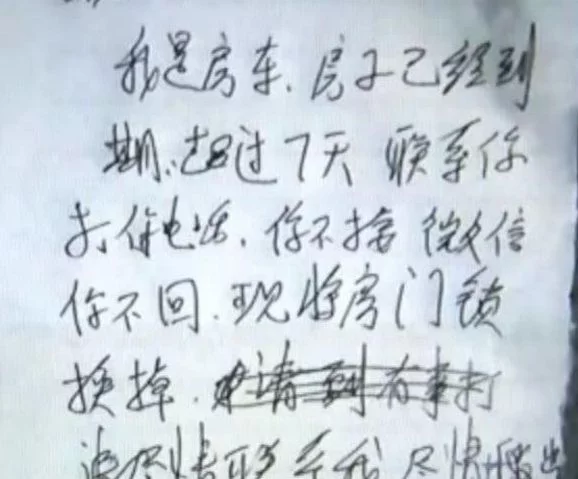 我是房东.房子已经到
期.超过7天 联系你
打你电话.你不接 微信
你不回.现将房门锁
换掉.请到有事打
请尽快联系我 尽快搬出